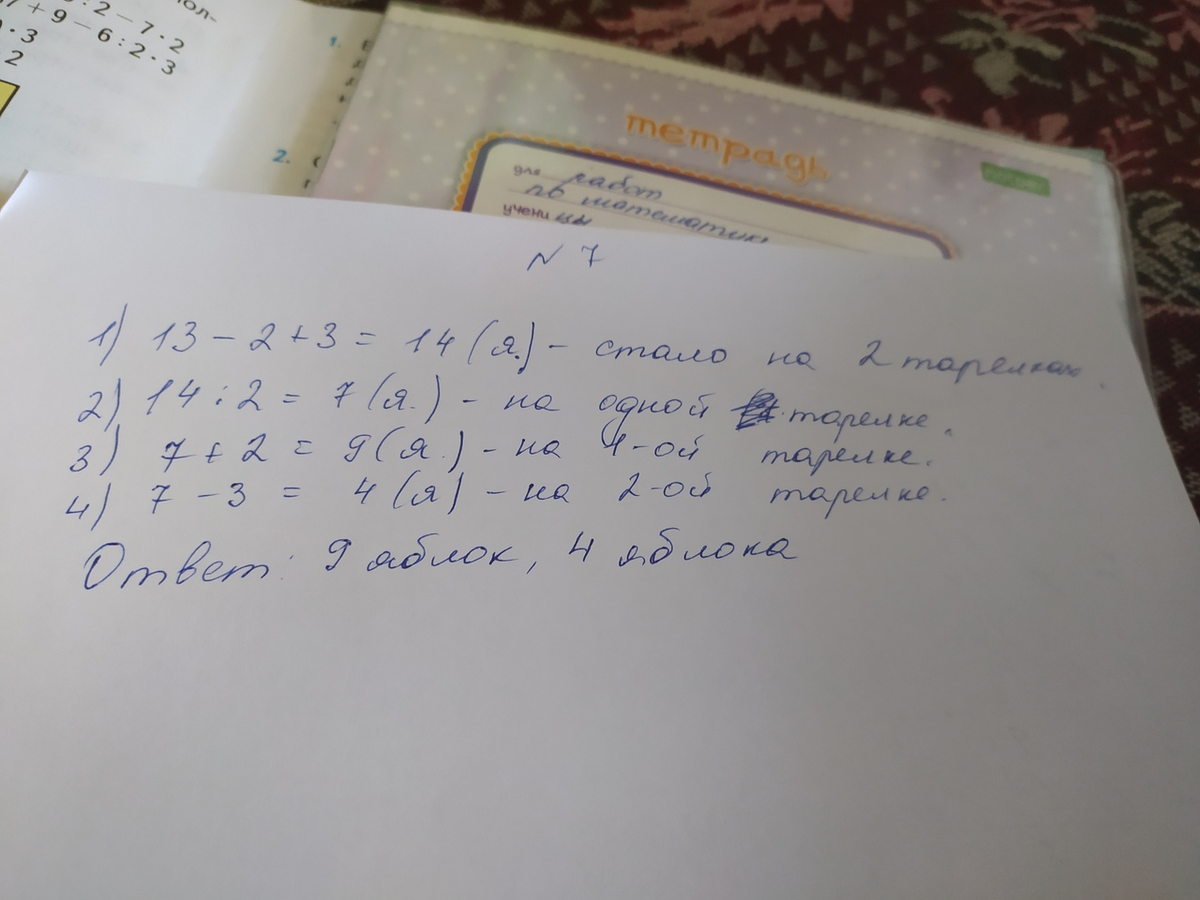 : 2 − 7 · 2
7 + 9 − 6 : 2 · 3
· 3
2
1.
2.
тетрадь
для работ
по математике
учени цы
N 7
1) 13 − 2 + 3 = 14 (я.) − стало на 2 тарелках.
2) 14 : 2 = 7 (я.) − на одной тарелке.
3) 7 + 2 = 9 (я.) − на 1-ой тарелке.
4) 7 − 3 = 4 (я) − на 2-ой тарелке.
Ответ: 9 яблок, 4 яблока